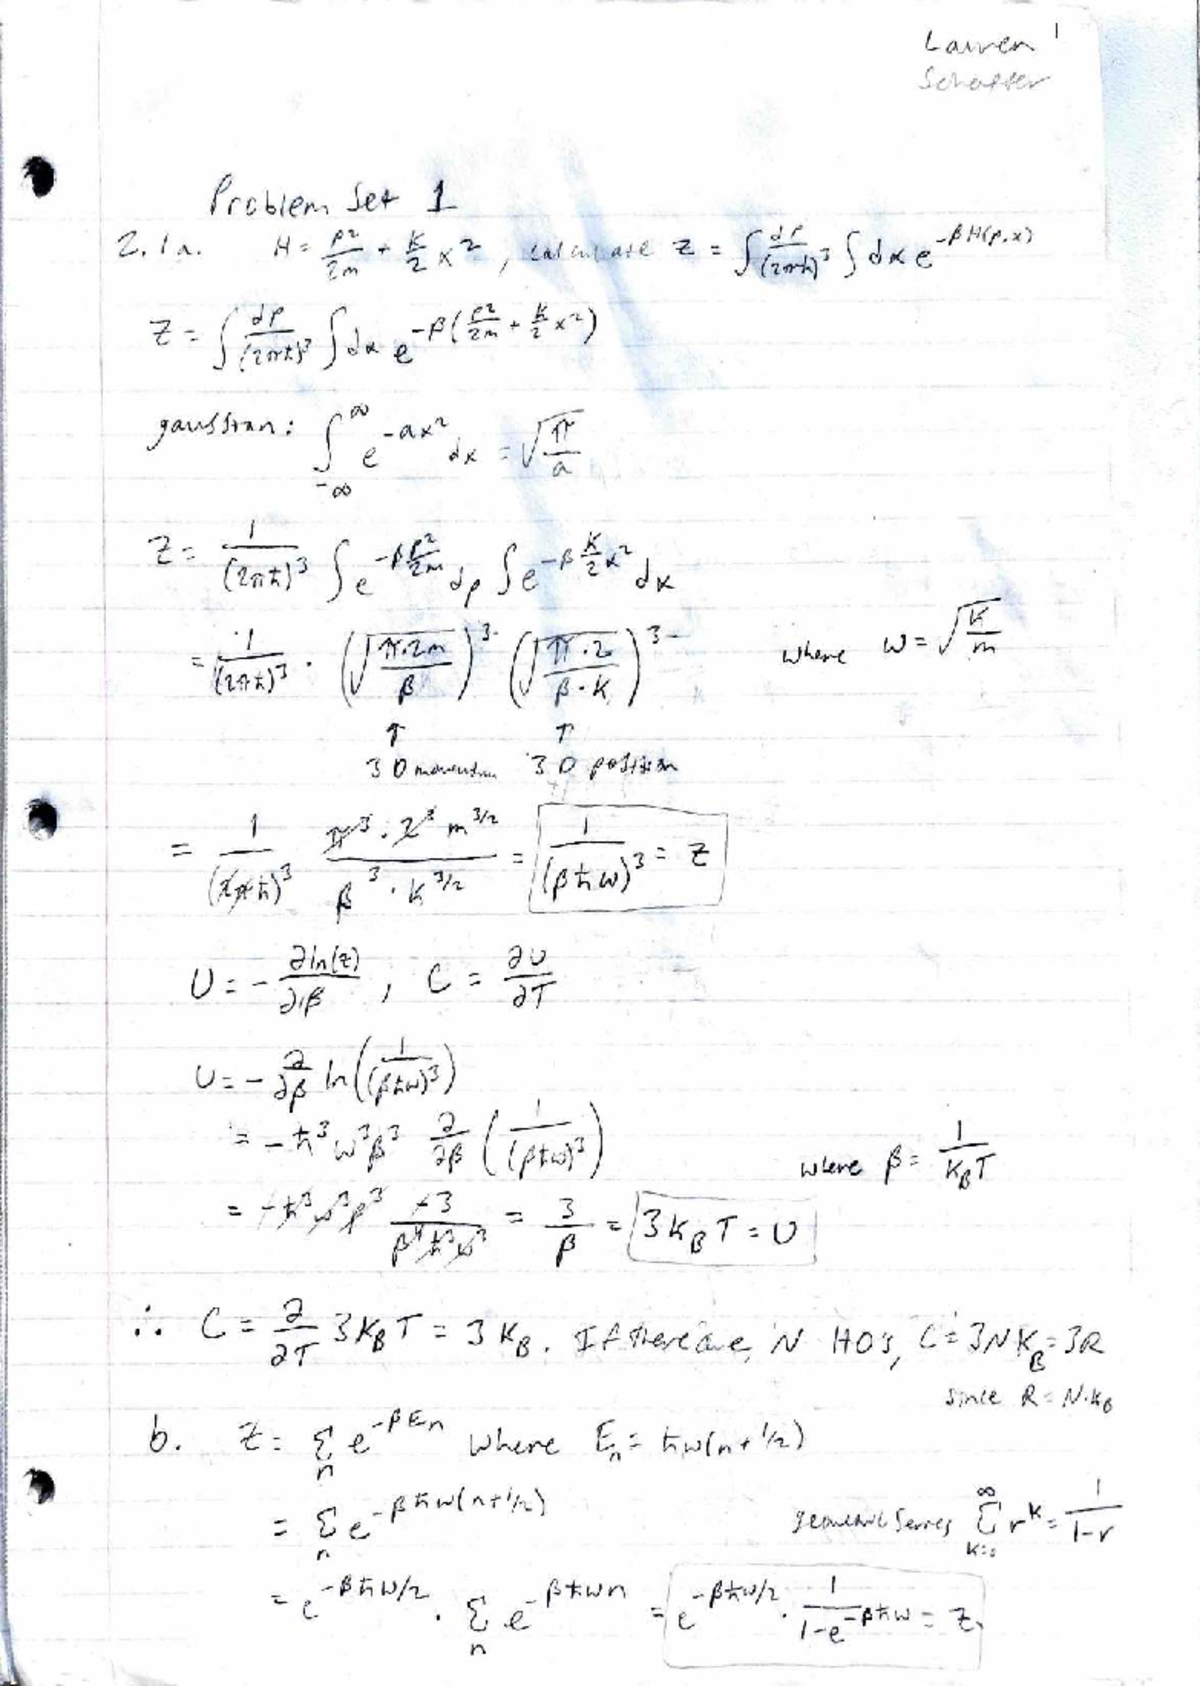 Lauren 1
Schaffer
Problem Set 1
2.1a. H = p²/2m + k/2 x², calculate Z = ∫ dp/(2πħ)³ ∫ dx e^(-βH(p,x))
Z = ∫ dp/(2πħ)³ ∫ dx e^(-β(p²/2m + k/2 x²))
gaussian: ∫_{-∞}^{∞} e^(-ax²) dx = √(π/a)
Z = 1/(2πħ)³ ∫ e^(-β p²/2m) dp ∫ e^(-β k/2 x²) dx
= 1/(2πħ)³ · (√(π·2m/β))³ (√(π·2/(β·k)))³ where ω = √(k/m)
↑ ↑
3D momentum 3D position
= 1/(2πħ)³ π³·2³ m^(3/2) / (β³·k^(3/2)) = 1/(βħω)³ = Z
U = - ∂ln(z)/∂β , C = ∂U/∂T
U = - ∂/∂β ln(1/(βħω)³)
= -ħ³ω³β³ ∂/∂β (1/(βħω)³)
= -ħ³ω³β³ -3/(β⁴ħ³ω³) = 3/β = 3k_BT = U where β = 1/(k_BT)
∴ C = ∂/∂T 3k_BT = 3k_B. If there are N HO's, C = 3Nk_B = 3R
since R = N·k_B
b. Z = Σ_n e^(-βE_n) where E_n = ħω(n+1/2)
= Σ_n e^(-βħω(n+1/2)) geometric series Σ_{k=0}^{∞} r^k = 1/(1-r)
= e^(-βħω/2) · Σ_n e^(-βħωn) = e^(-βħω/2) · 1/(1-e^(-βħω)) = Z